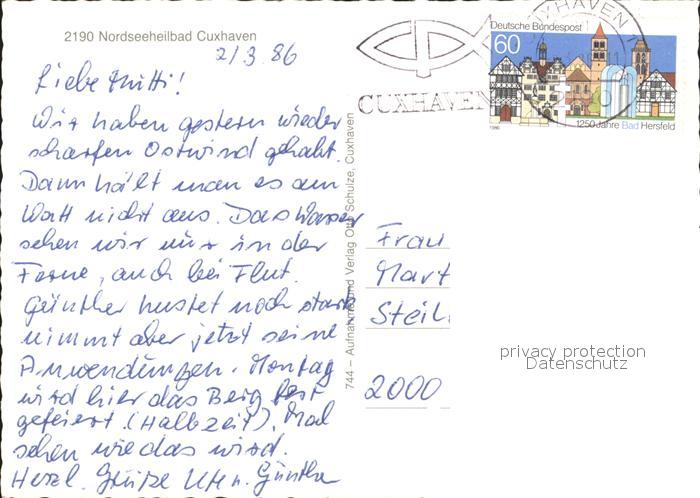 2190 Nordseeheilbad Cuxhaven
2/3.86
Liebe Mutti!
Wir haben gestern wieder
scharfen Ostwind gehabt.
Dann hält man es am
Watt nicht aus. Das Wasser
sehen wir nur in der
Ferne, auch bei Flut.
Günther hustet noch stark
nimmt aber jetzt seine
Anwendungen. Montag
wird hier das Bergfest
gefeiert (Halbzeit). Mal
sehen wie das wird.
Herzl. Grüße Ute u. Günther
744 – Aufnahme und Verlag Otto Schulze, Cuxhaven
CUXHAVEN
CUXHAVEN
Deutsche Bundespost
60
1986
1250 Jahre Bad Hersfeld
Frau
Mart
Steil
2000
privacy protection
Datenschutz